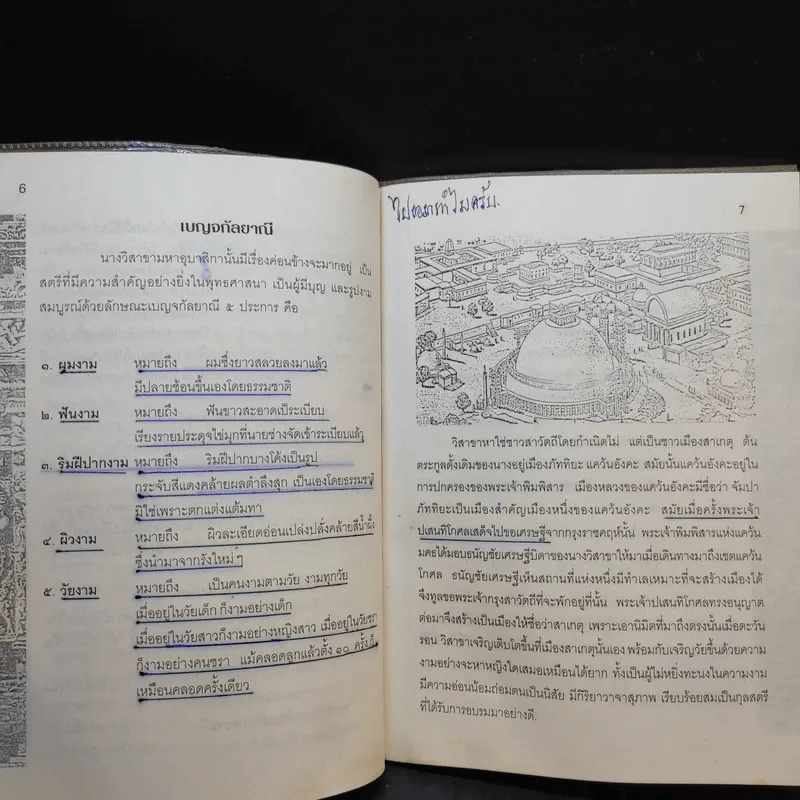 6
เบญจกัลยาณี
นางวิสาขามหาอุบาสิกานั้นมีเรื่องค่อนข้างจะมากอยู่ เป็น
สตรีที่มีความสำคัญอย่างยิ่งในพุทธศาสนา เป็นผู้มีบุญ และรูปงาม
สมบูรณ์ด้วยลักษณะเบญจกัลยาณี ๕ ประการ คือ
๑. ผมงาม หมายถึง ผมซึ่งยาวสลวยลงมาแล้ว
มีปลายช้อนขึ้นเองโดยธรรมชาติ
๒. ฟันงาม หมายถึง ฟันขาวสะอาดเป็นระเบียบ
เรียงรายประดุจไข่มุกที่นายช่างจัดเข้าระเบียบแล้ว
๓. ริมฝีปากงาม หมายถึง ริมฝีปากบางโค้งเป็นรูป
กระจับสีแดงคล้ายผลตำลึงสุก เป็นเองโดยธรรมชาติ
มิใช่เพราะตกแต่งแต้มทา
๔. ผิวงาม หมายถึง ผิวละเอียดอ่อนเปล่งปลั่งคล้ายสีน้ำผึ้ง
ซึ่งนำมาจากรังใหม่ๆ
๕. วัยงาม หมายถึง เป็นคนงามตามวัย งามทุกวัย
เมื่ออยู่ในวัยเด็ก ก็งามอย่างเด็ก
เมื่ออยู่ในวัยสาวก็งามอย่างหญิงสาว เมื่ออยู่ในวัยชรา
ก็งามอย่างคนชรา แม้คลอดลูกแล้วตั้ง ๑๐ ครั้ง ก็
เหมือนคลอดครั้งเดียว
7
วิสาขาหาใช่ชาวสาวัตถีโดยกำเนิดไม่ แต่เป็นชาวเมืองสาเกตุ ต้น
ตระกูลดั้งเดิมของนางอยู่เมืองภัททิยะ แคว้นอังคะ สมัยนั้นแคว้นอังคะอยู่ใน
การปกครองของพระเจ้าพิมพิสาร เมืองหลวงของแคว้นอังคะมีชื่อว่า จัมปา
ภัททิยะเป็นเมืองสำคัญเมืองหนึ่งของแคว้นอังคะ สมัยเมื่อครั้งพระเจ้า
ปเสนทิโกศลเสด็จไปขอเศรษฐีจากกรุงราชคฤห์นั้น พระเจ้าพิมพิสารแห่งแคว้น
มคธได้มอบธนัญชัยเศรษฐีบิดาของนางวิสาขาให้มาเมื่อเดินทางมาถึงเขตแคว้น
โกศล ธนัญชัยเศรษฐีเห็นสถานที่แห่งหนึ่งมีทำเลเหมาะที่จะสร้างเมืองได้
จึงทูลขอพระเจ้ากรุงสาวัตถีที่จะพักอยู่ที่นั้น พระเจ้าปเสนทิโกศลทรงอนุญาต
ต่อมาจึงสร้างเป็นเมืองให้ชื่อว่าสาเกตุ เพราะเอานิมิตที่มาถึงตรงนั้นเมื่อตะวัน
รอน วิสาขาเจริญเติบโตขึ้นที่เมืองสาเกตุนั้นเอง พร้อมกับเจริญวัยขึ้นด้วยความ
งามอย่างจะหาหญิงใดเสมอเหมือนได้ยาก ทั้งเป็นผู้ไม่หยิ่งทะนงในความงาม
มีความอ่อนน้อมถ่อมตนเป็นนิสัย มีกิริยาวาจาสุภาพ เรียบร้อยสมเป็นกุลสตรี
ที่ได้รับการอบรมมาอย่างดี.